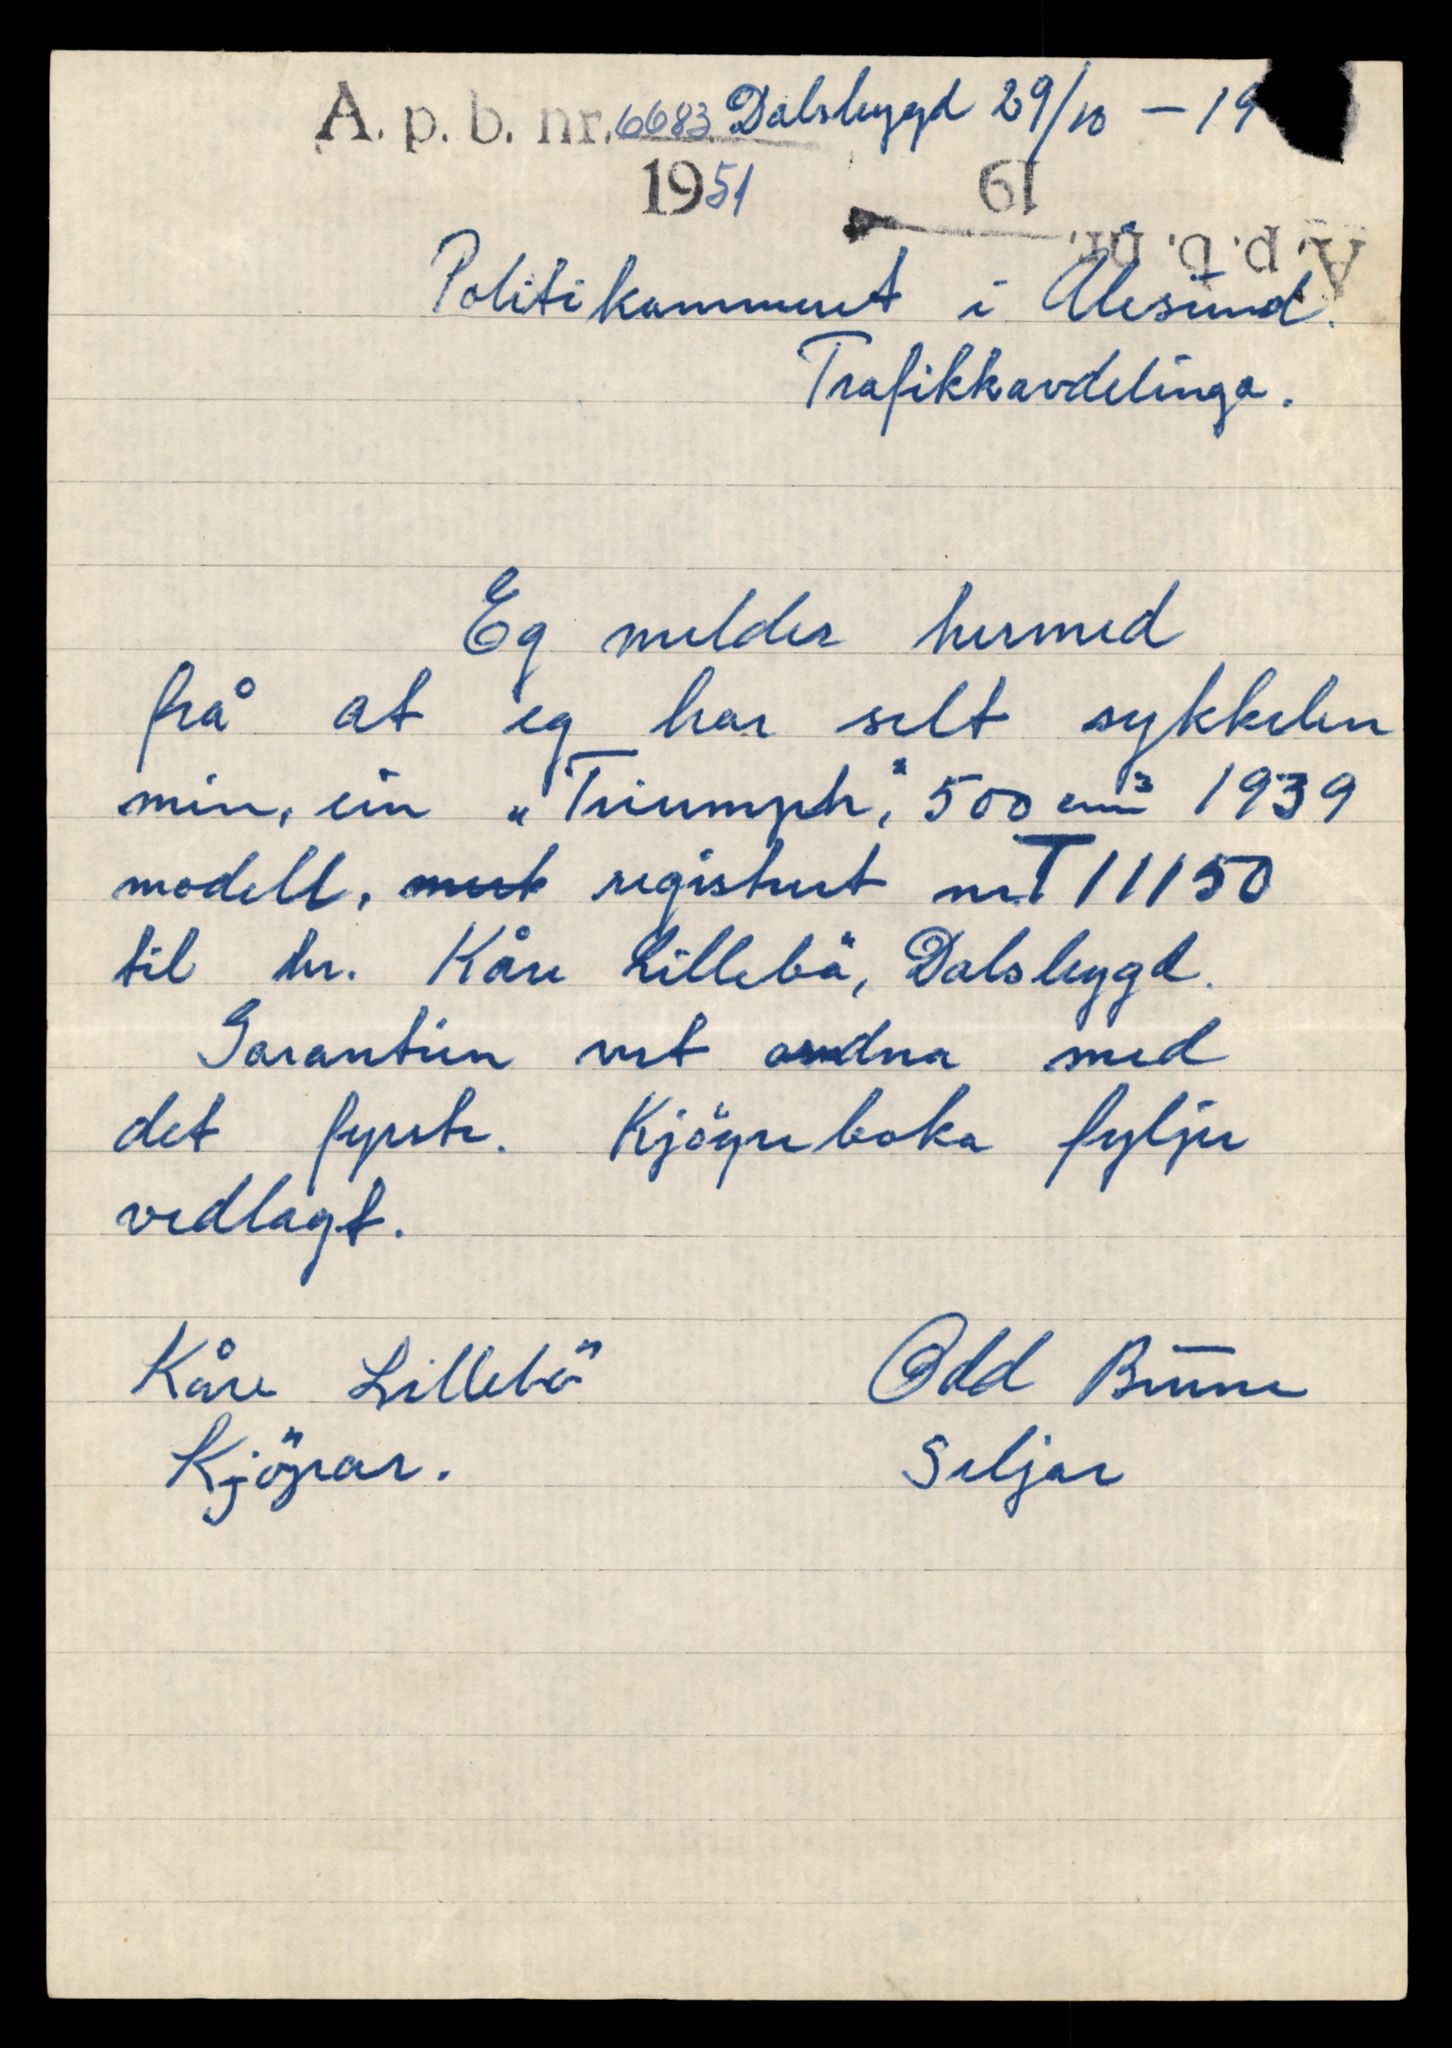 A. p. b. nr. 6683 Dalsbygd 29/10 - 19
1951
19
A. p. b. nr.
Politikammeret i Ålesund.
Trafikkavdelinga.
Eg melder hermed
frå at eg har selt sykkelen
min, ein „Triumph", 500 cm³ 1939
modell, registrert nr. T 11150
til hr. Kåre Lillebö, Dalsbygd.
Garantien vert ordna med
det fyrste. Kjöpeboka fylgjer
vedlagt.
Kåre Lillebö Odd Brune
Kjöpar. Seljar